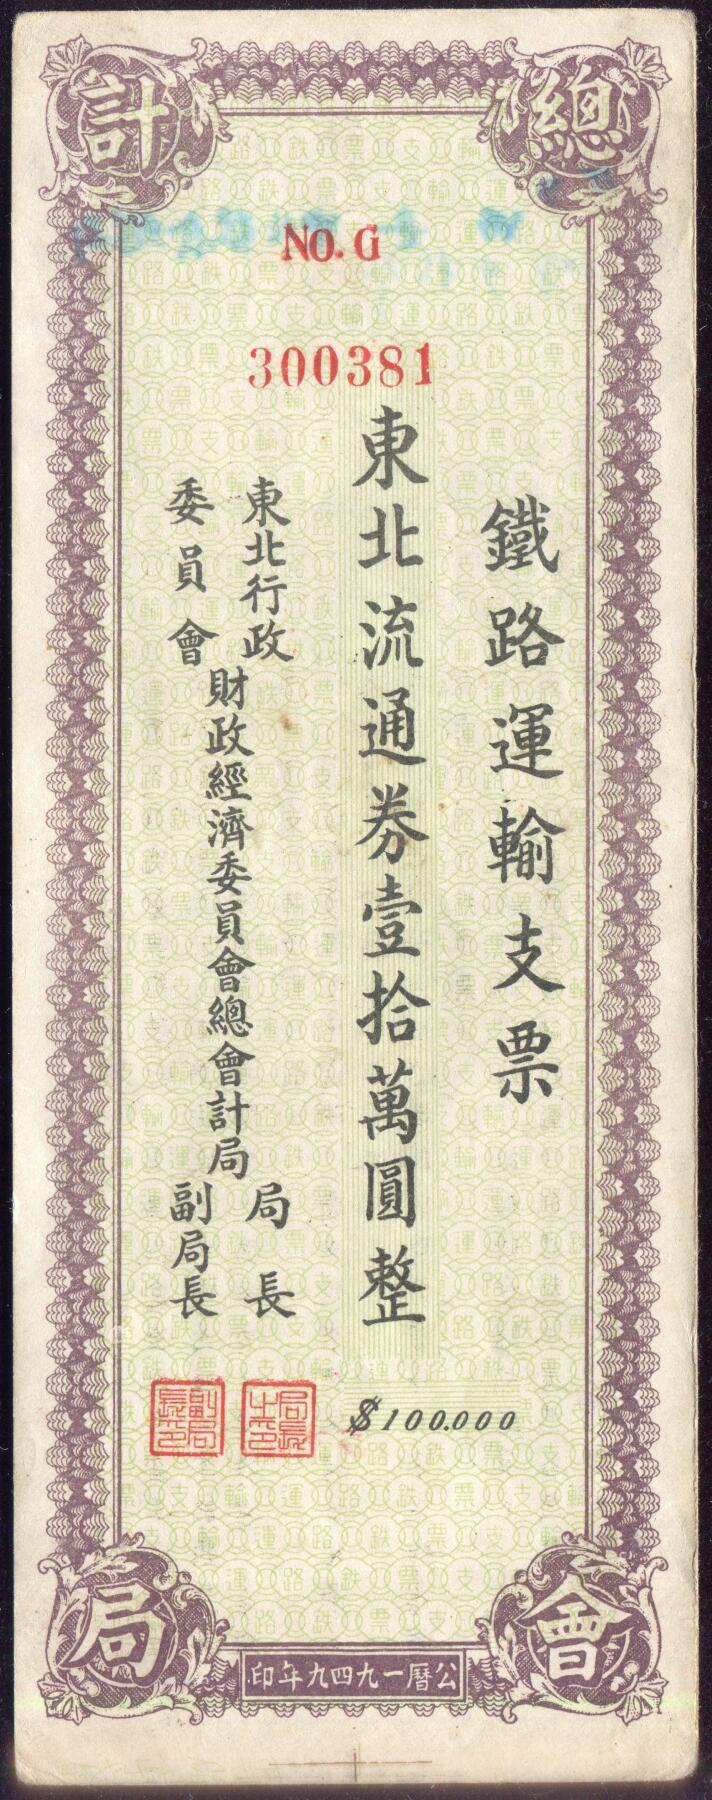 總會計局
NO. G
300381
鐵路運輸支票
東北流通券壹拾萬圓整
$100.000
東北行政委員會
財政經濟委員會總會計局
局長
副局長
局長之印
副局長印
公曆一九四九年印